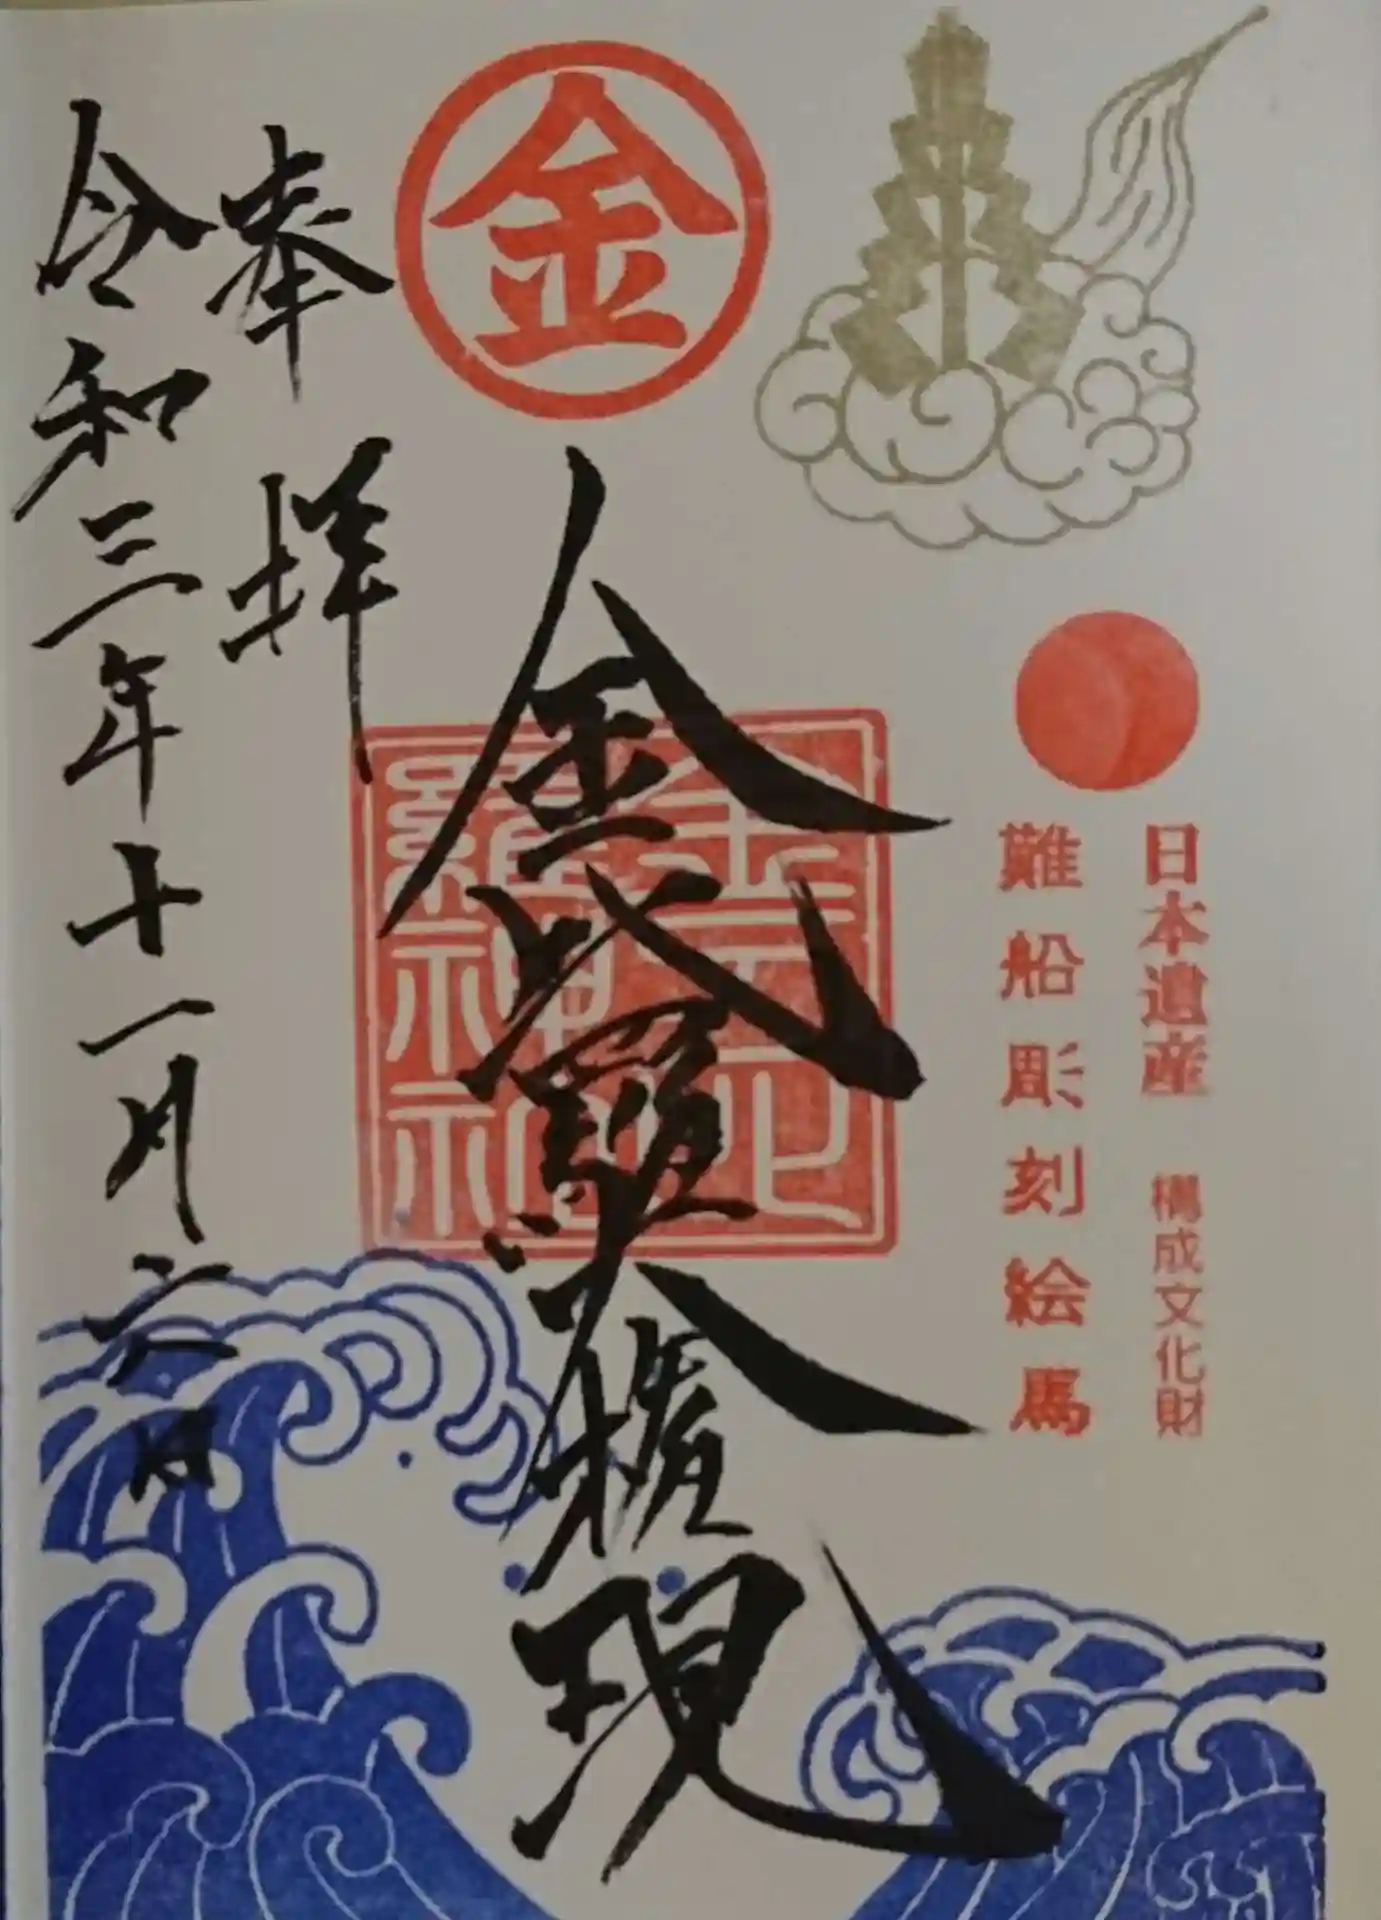 日本遺産 構成文化財
難船彫刻絵馬
金
金比羅大権現
金刀比羅神社
奉拝
令和三年十一月六日